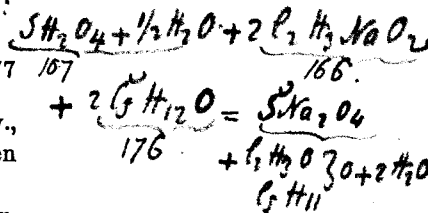 SH₂O₄ + 1/2 H₂O + 2 C₂ H₃ NaO₂
107 166.
+ 2 C₅ H₁₂ O = SNa₂O₄
176
+ C₂H₃O } O + 2 H₂O
C₅ H₁₁
77
v.,
en